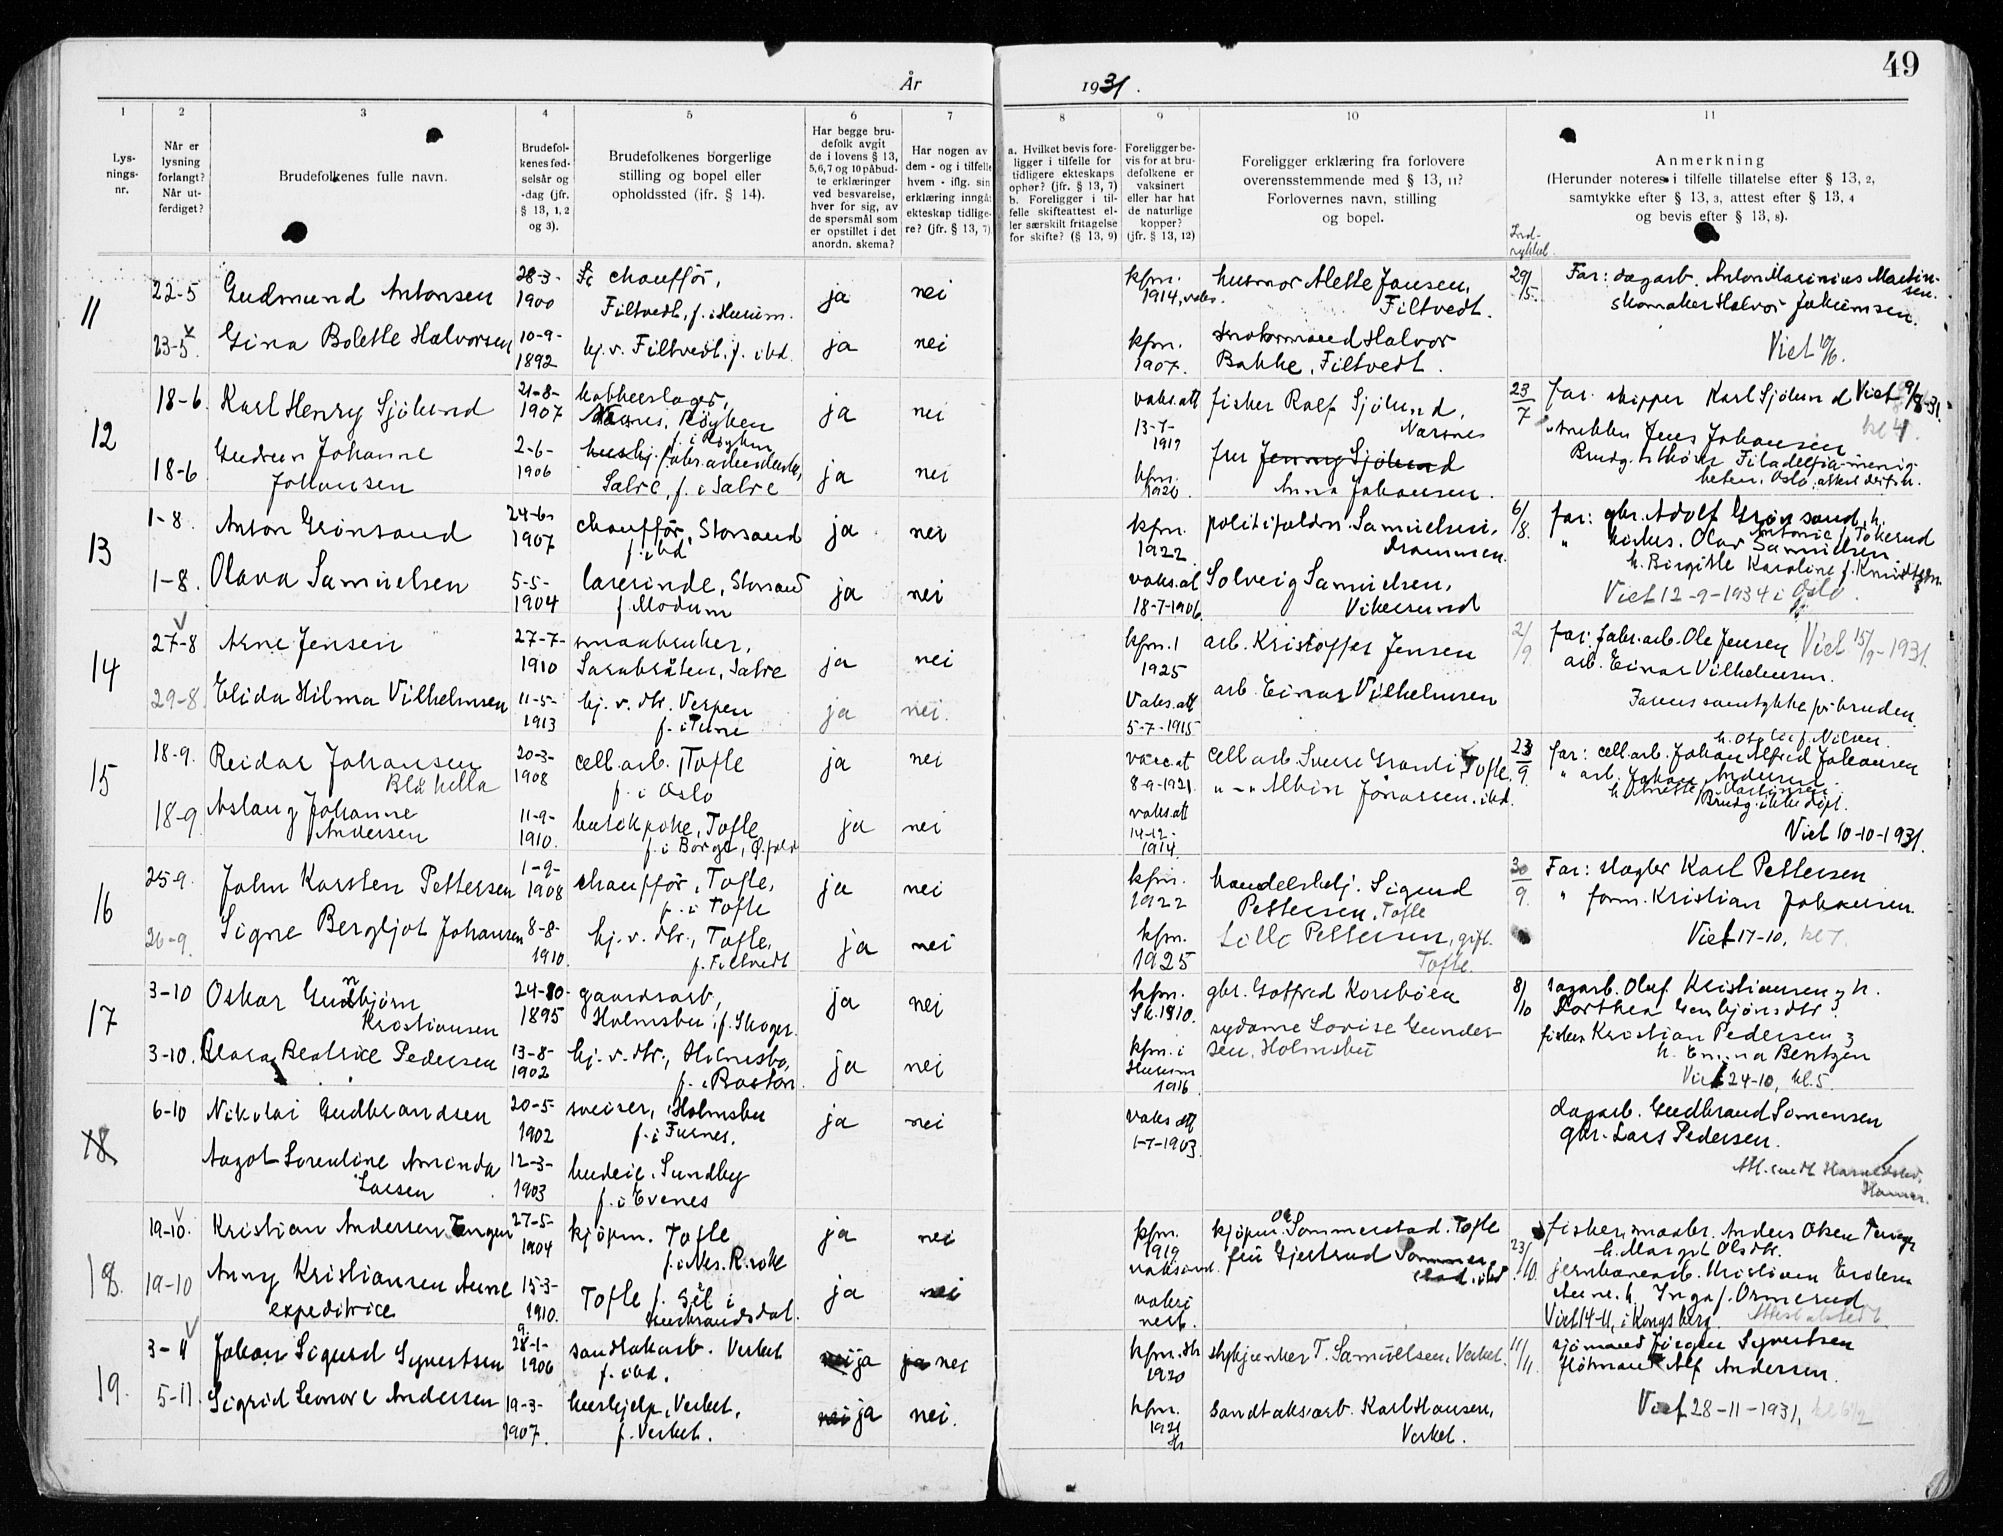 49
År 1931.
1
2
3
4
5
6
7
8
9
10
11
Lys-
nings-
nr.
Når er
lysning
forlangt?
Når ut-
ferdiget?
Brudefolkenes fulle navn.
Brudefol-
kenes fød-
selsår og
-dag (jfr.
§ 13, 1, 2
og 3).
Brudefolkenes borgerlige
stilling og bopel eller
opholdssted (ifr. § 14).
Har begge bru-
defolk avgit
de i lovens § 13,
5,6,7 og 10 påbud-
te erklæringer
ved besvarelse,
hver for sig, av
de spørsmål som
er opstillet i det
anordn. skema?
Har nogen av
dem - og i tilfelle
hvem - iflg. sin
erklæring inngåt
ekteskap tidlige-
re? (jfr. § 13, 7)
a. Hvilket bevis fore-
ligger i tilfelle for
tidligere ekteskaps
ophør? (jfr. § 13, 7)
b. Foreligger i til-
felle skifteattest el-
ler særskilt fritagelse
for skifte? (§ 13, 9)
Foreligger be-
vis for at bru-
defolkene er
vaksinert
eller har hat
de naturlige
kopper?
(jfr. § 13, 12)
Foreligger erklæring fra forlovere
overensstemmende med § 13, 11?
Forlovernes navn, stilling
og bopel.
Anmerkning
(Herunder noteres i tilfelle tillatelse efter § 13, 2,
samtykke efter § 13, 3, attest efter § 13, 4
og bevis efter § 13, 8).
Ind-
rykket.
11
22-5 Gudmund Antonsen 28-3-1900 chauffør,
Filtvedt, f. i Hurum. ja nei
kfm. 1914, vaks. husmor Alette Jansen,
Filtvedt. 29/5. Far: dagarb. Anton Marinius Martin-
sen.
skomaker Halvor Jakimsen.
23-5. Gina Bolette Halvorsen 10-9-1892 hj. v. Filtvedt, f. ibd. ja nei
kfm. 1907. motormand Halvor
Bakke, Filtvedt. Viet 10/6.
12
18-6. Karl Henry Sjølund 21-8-1907 kobberslager,
Nærsnes, Røyken
f. i Røyken ja nei
vaks.att 13-7-1917 fisker Rolf Sjølund,
Nærsnes 23/7 far. skipper Karl Sjølund Viet 9/8-31.
kl 4.
18-6 Gudrun Johanne
Johansen 2-6-1906 fabr.arbeiderske,
Sætre, f. i Sætre ja nei
kfm. 1920. fru Jenny Sjølund
Anna Johansen. snekker Jens Johansen
Brudg. tilhører Filadelfia-menig-
heten, Oslo, attest derfra.
13
1-8. Anton Grønsand 24-6-1907 chauffør, Storsand
f. ibd ja nei
kfm. 1922. politifuldm. Samuelsen,
Drammen. 6/8. far: gbr. Adolf Grønsand, h.
Antonie Tokerud
1-8. Olava Samuelsen 5-5-1904 lærerinde, Storsand
f. Modum ja nei
vaks.at 18-7-1906 Solveig Samuelsen,
Vikersund " kirkes. Olav Samuelsen
h. Birgitte Karoline f. Knudtzen
Viet 12-9-1934 i Oslo.
14
27-8 Arne Jensen 27-7-1910 smaabruker,
Sarabråten, Sætre ja nei
kfm. 1 1925 arb. Kristoffer Jensen 2/9. far: fabr.arb. Ole Jensen Viet 15/9-1931.
29-8 Elida Hilma Vilhelmsen 11-5-1913 hj. v. dtr. Verpen
f. i Tune ja nei.
Vaks.att 5-7-1915 arb. Einar Vilhelmsen arb. Einar Vilhelmsen.
Farens samtykke for bruden.
15
18-9. Reidar Johansen
Blåhella 20-3-1908 cell.arb., Tofte
f. i Oslo ja nei
vacc.at 8-9-1921. cell.arb. Sverre Granli, Tofte, 23/9. h. Otelie f. Nilsen.
far: cell.arb. Johan Alfred Johansen
18-9 Aslaug Johanne
Andersen 11-9-1910. butikpike, Tofte
f. i Borge, Ø.fold ja nei
vaks.att 14-12-1914. " - " Albin Jonassen. ibd. " arb. Johan Andersen
h. Anette Martinsen.
Brudg. ikke døpt.
Viet 10-10-1931.
16
25-9. John Karsten Pettersen 1-9-1908 chauffør, Tofte,
f. i Tofte ja nei
kfm. 1922 handelsbetj. Sigurd
Pettersen, Tofte 30/9. Far: slagter Karl Pettersen
26-9. Signe Bergljot Johansen 8-8-1910. hj. v. dtr., Tofte,
f. Filtvedt ja nei
kfm. 1925 Lilly Pettersen, gift.
Tofte. " form. Kristian Johansen.
Viet 17-10, kl 7.
17
3-10 Oskar Gunbjørn
Kristiansen 24-10-1895 gaardsarb,
Holmsbu, f. Skoger. ja nei
kfm. Sk. 1910. gbr. Gotfred Korsbøen 8/10 sagarb. Olaf Kristiansen, h.
Dorthea Gunbjønsdtr.
3-10. Clara Beatrice Pedersen 13-8-1902 hj. v. dtr., Holmsbo,
f. i Boston. ja nei
kfm. i Hurum 1916 sydame Lovise Gunder-
sen, Holmsbu fisker Kristian Pedersen
h. Emma Bentzen
Viet 24-10, kl. 5.
18
6-10 Nikolai Gudbrandsen 20-5-1902 sveiser, Holmsbu
f. i Furnes. ja nei
vaks att 1-7-1903. dagarb. Gudbrand Simensen
Aagot Lorentine Aminda
Larsen 12-3-1903 budeie, Sundby
f. i Evenes gbr. Lars Pedersen.
Att. sendt
18.
19-10. Kristian Andersen Tangen 27-5-1904 kjøpm. Tofte
f. i Nes. R.rike ja nei
kfm. 1919 kjøpm. Ole Sommerstad. Tofte 23/10. fisker, smaabr. Anders Olsen Tangen
h. Margit Olsdtr.
19-10 Anny Kristiansen Aune
expeditrice 15-3-1910. Tofte f. Sel i
Gudbrandsdal. ja nei
vaks. fru Gjertrud Sommer-
stad, ibd jernbanearb. Kristian Eriksen
Aune. h. Inga f. Ormerud
Viet 14-11, i Kongsberg. Attest utstedt.
19.
3-11 Johan Sigurd Syvertsen 28-1-1906 sandtakarb. Verket
f. ibd. nei ja ja nei
kfm. 1920 skytjunker T. Samuelsen, Verket. 11/11. sjømand Jørgen Syvertsen
5-11. Sigrid Leonore Andersen 19-3-1907. hushjelp, Verket,
f. Verket. nei ja nei.
kfm. 1921 Sandtaksarb. Karl Hansen,
Verket. fløtmand Alf Andersen.
Viet 28-11-1931, kl 6 1/2